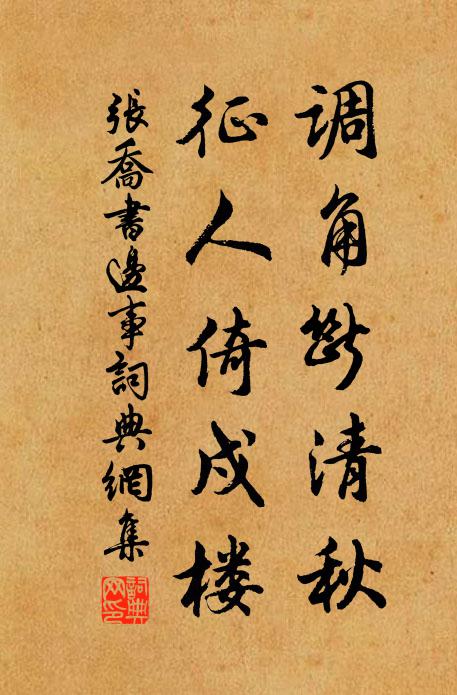 调角断清秋
征人倚戍楼
張喬書邊事詞典網集
詞典网印